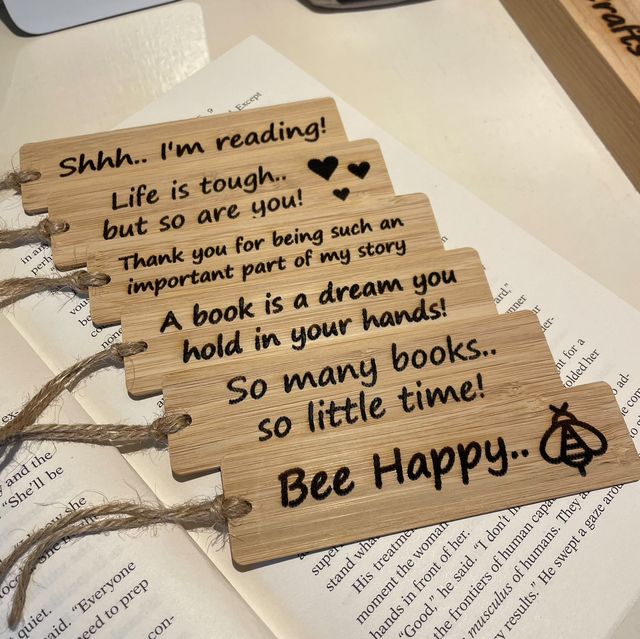 Shhh.. I'm reading!
Life is tough..
but so are you!
Thank you for being such an
important part of my story
A book is a dream you
hold in your hands!
So many books..
so little time!
Bee Happy..
crafts
9
Except
in a
perh
card."
nner
ent for a
folded her
and the
"She'll be
quiet.
said. "Everyone
need to prep
con-
stand what
His treatme
moment the woman
hands in front of her.
"Good," he said. "I don't
the frontiers of human capa
musculus of humans. They a
y results. He swept a gaze aro